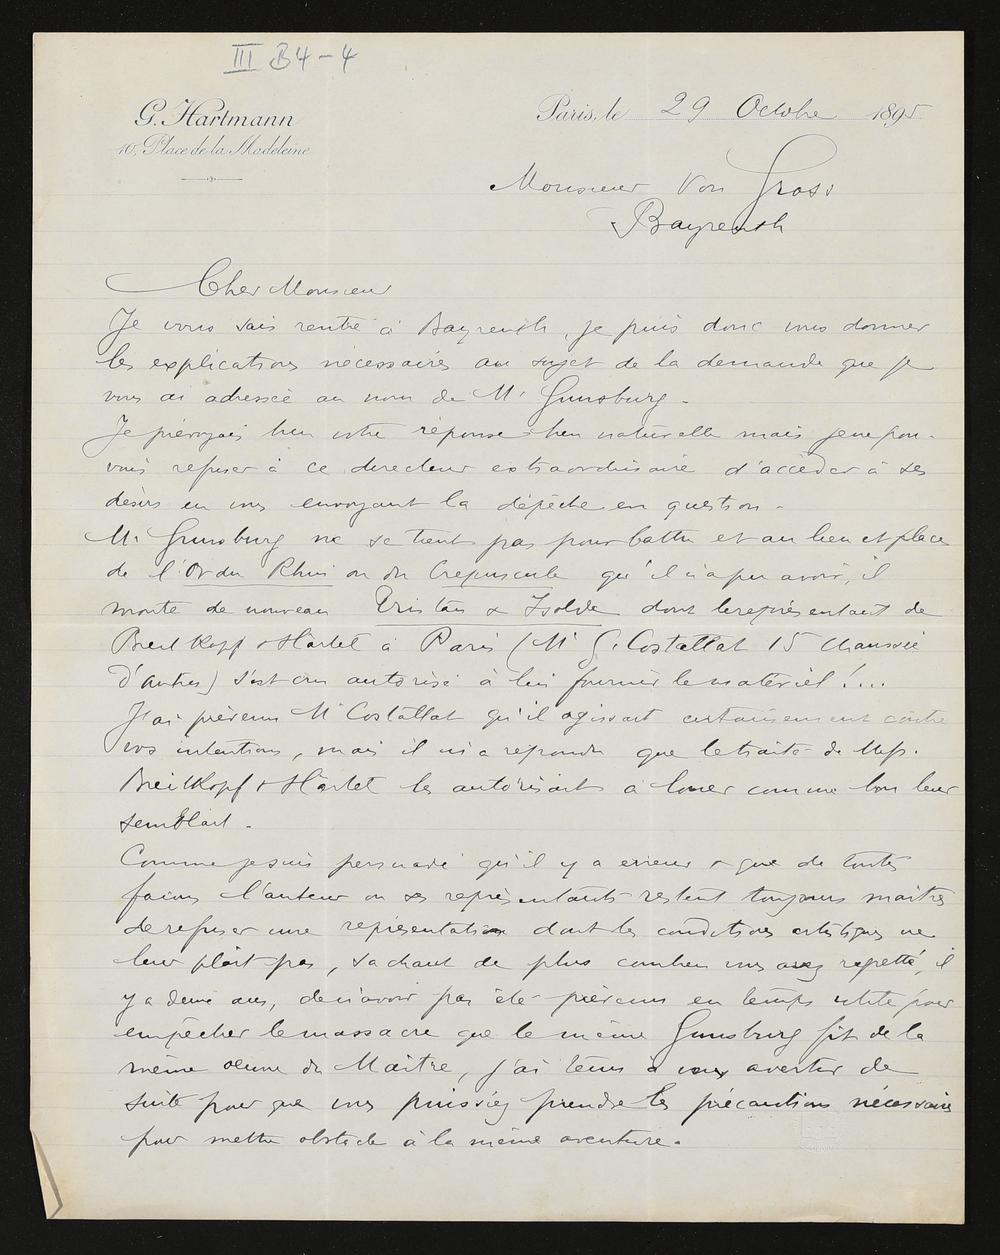 III B4-4
G. Hartmann
10, Place de la Madeleine
Paris, le 29 Octobre 1895
Monsieur Von Gross
Bayreuth
Cher Monsieur
Je vous sais rentré à Bayreuth, je puis donc vous donner
les explications nécessaires au sujet de la demande que je
vous ai adressée au nom de Mr Gunsburg.
Je prévoyais bien votre réponse bien naturelle mais je ne pou-
vais refuser à ce directeur extraordinaire d'accéder à ses
désirs en vous envoyant la dépêche en question.
Mr Gunsburg ne se tient pas pour battu et au lieu et place
de l'Or du Rhin ou du Crépuscule qu'il n'a pu avoir, il
monte de nouveau Tristan & Isolde dont le représentant de
Breitkopf & Härtel à Paris (Mr G. Costallat 15 chaussée
d'Antin) s'est cru autorisé à lui fournir le matériel!...
J'ai prévenu Mr Costallat qu'il agissait certainement contre
vos intentions, mais il m'a répondu que le traité de Mess.
Breitkopf & Härtel les autorisait à louer comme bon leur
semblait.
Comme je suis persuadé qu'il y a erreur & que de toutes
façons l'auteur ou ses représentants restent toujours maîtres
de refuser une représentation dont les conditions artistiques ne
leur plait pas, sachant de plus combien vous avez regretté, il
y a deux ans, de n'avoir pas été prévenus en temps utile pour
empêcher le massacre que le même Gunsburg fit de la
même oeuvre du Maître, j'ai tenu à vous avertir de
suite pour que vous puissiez prendre les précautions nécessaires
pour mettre obstacle à la même aventure.